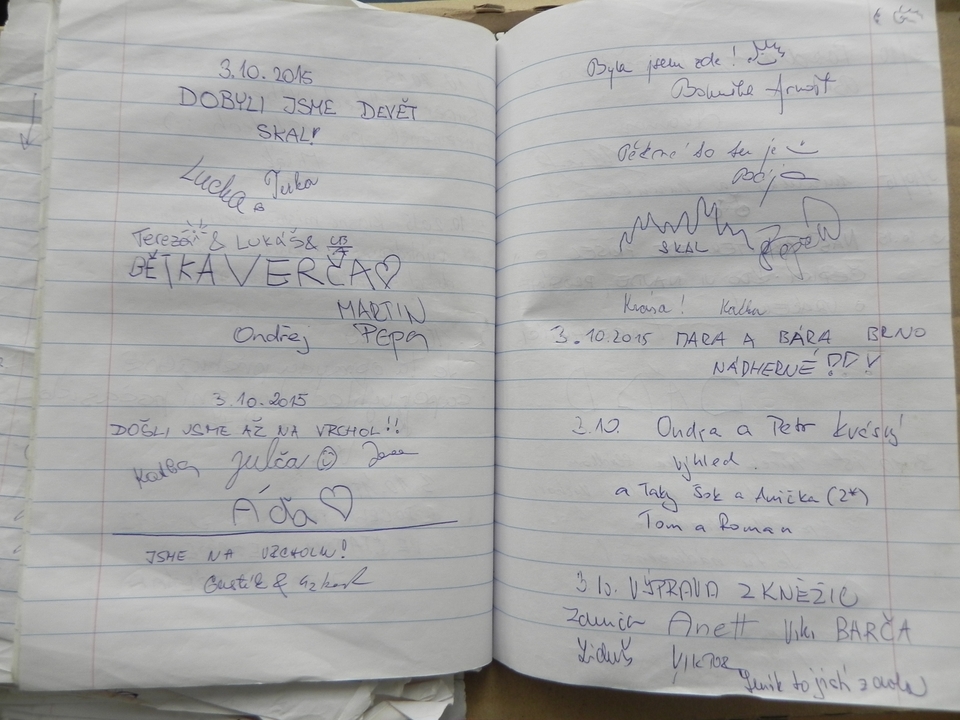 3.10.2015
DOBYLI JSME DEVĚT
SKAL!
Lucka Jirka
Tereza & LUKÁŠ &
BĚTKA VERČA
MARTIN
Ondřej PEPA
3.10.2015
DOŠLI JSME AŽ NA VRCHOL!!
Katka Julča Jana
Áďa
JSME NA VRCHOLU!
Byla jsem zde!
Bohumila
Pěkné to tu je
SKAL
Krása! Katka
3.10.2015 MARA A BÁRA BRNO
NÁDHERNÉ!!!
3.10. Ondra a Petr krásný
výhled.
a Taky Šok a Anička (2*)
Tom a Roman
3.10. VÝPRAVA Z KNĚŽIC
Anett Viki BARČA
Liduš VIKTOR